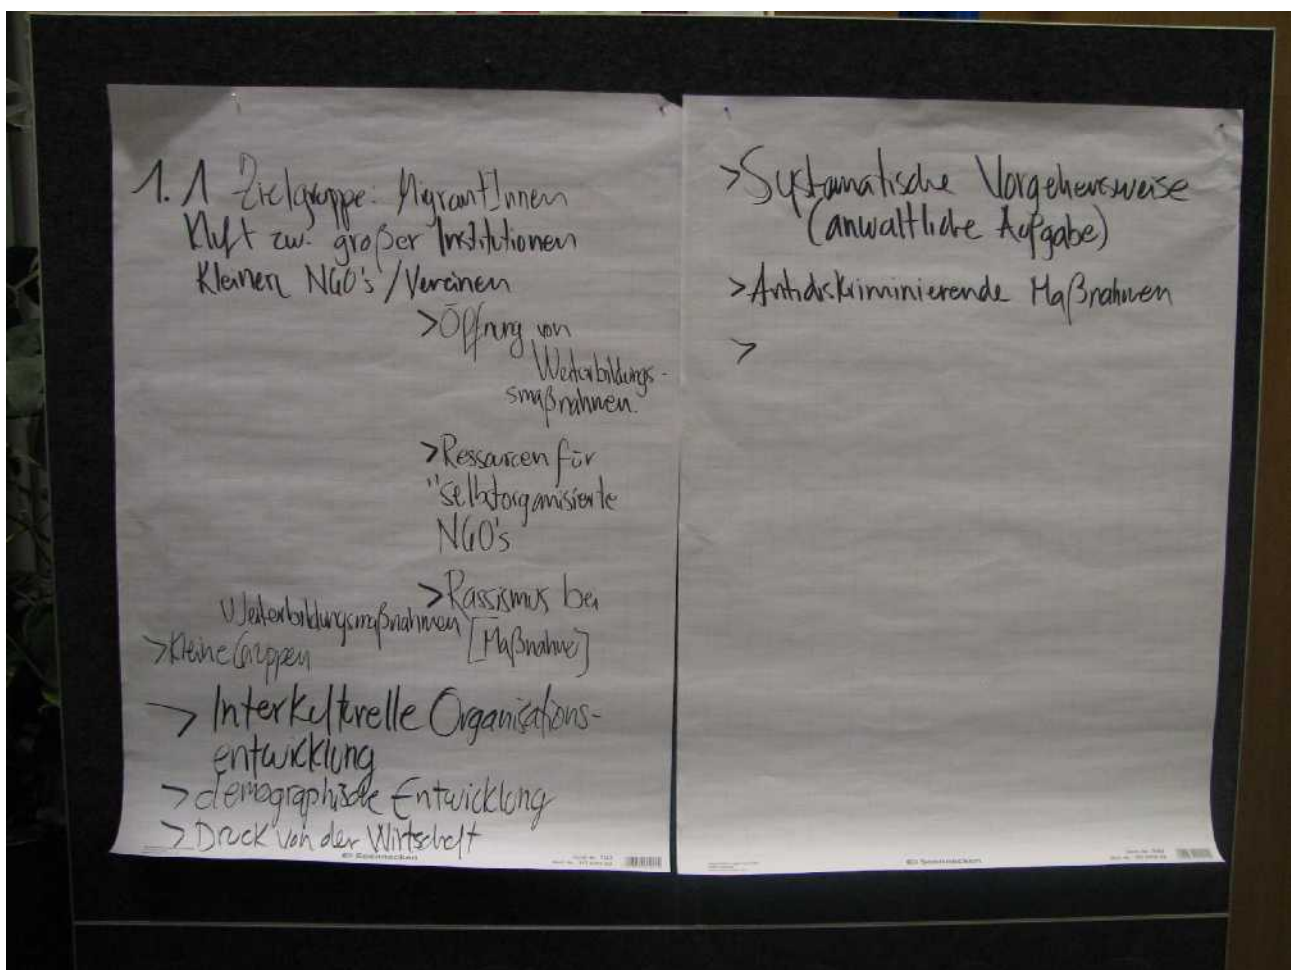 1.1 Zielgruppe: MigrantInnen
Kluft zw. großer Institutionen
Kleinen NGO's / Vereinen
> Öffnung von
Weiterbildungs-
smaßnahmen.
> Ressourcen für
"selbstorganisierte
NGO's
> Rassismus bei
Weiterbildungsmaßnahmen [Maßnahme]
> Kleine Gruppen
> Interkulturelle Organisations-
entwicklung
> demographische Entwicklung
> Druck von der Wirtschaft
Soennecken
> Systamatische Vorgehensweise
(anwaltliche Aufgabe)
> Antidiskriminierende Maßnahmen
>
Soennecken